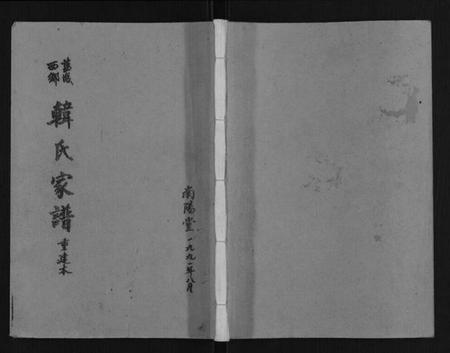 西鄉
韓氏家譜
重建本
南陽堂 一九九一年八月